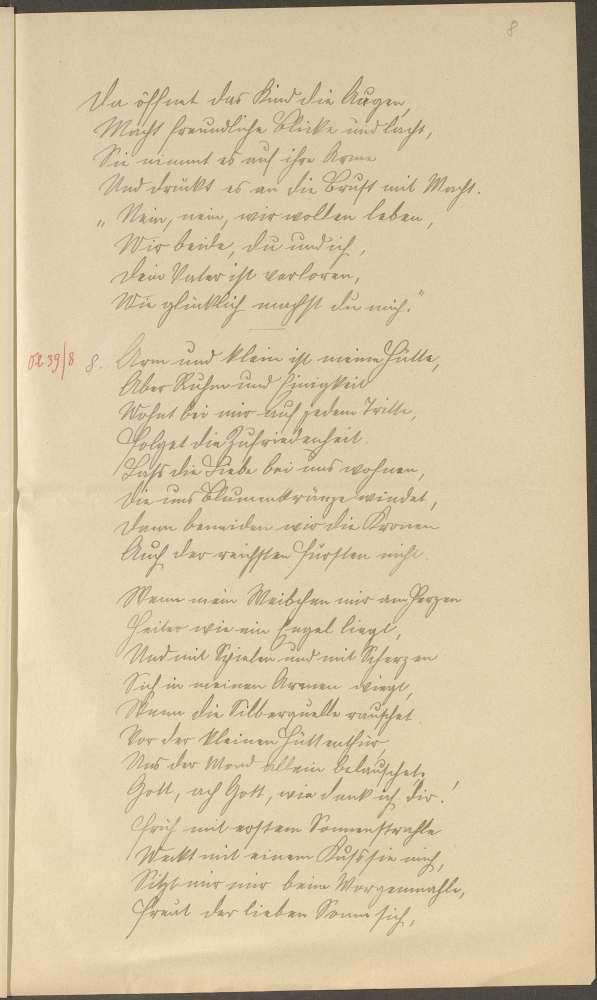 8
Da öffnet das Kind die Augen,
Macht freundliche Blicke und lacht,
Sie nimmt es auf ihre Arme
Und drückt es an die Brust mit Macht.
„Nein, nein, wir wollen leben,
Wir beide, du und ich,
Dein Vater ist verloren,
Wie glücklich machst du mich."
39/8 8. Arm und klein ist meine Hütte,
Aber Ruhm und Einigkeit
Wohnt bei mir auf jedem Tritte,
Folget die Zufriedenheit.
Lass die Liebe bei uns wohnen,
Die uns Blumenkränze windet,
Dann beneiden wir die Kronen
Auch der reichsten Fürsten nicht.
Wenn mein Weibchen mir am Herzen
Heiter wie ein Engel liegt,
Und mit Spielen und mit Scherzen
Sich in meinen Armen wiegt,
Wenn die Silberquelle rauschet
Vor der kleinen Hüttenthür,
Uns der Mond allein belauschet,
Gott, ach Gott, wie dank ich dir!
Früh mit erstem Sonnenstrahle
Weckt mit einem Kuss sie mich,
Sitzt mir beim Morgenmahle,
Freut der lieben Sonne sich,